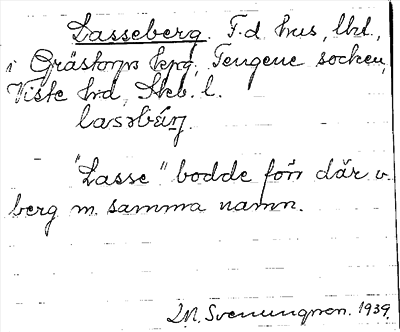 Lasseberg. F.d. hus, lht.,
i Grästorps kpg, Tengene socken,
Viste hd, Skb. l.
lasəbǽrj.
"Lasse" bodde förr där v.
berg m. samma namn.
M. Svenungsson. 1939.